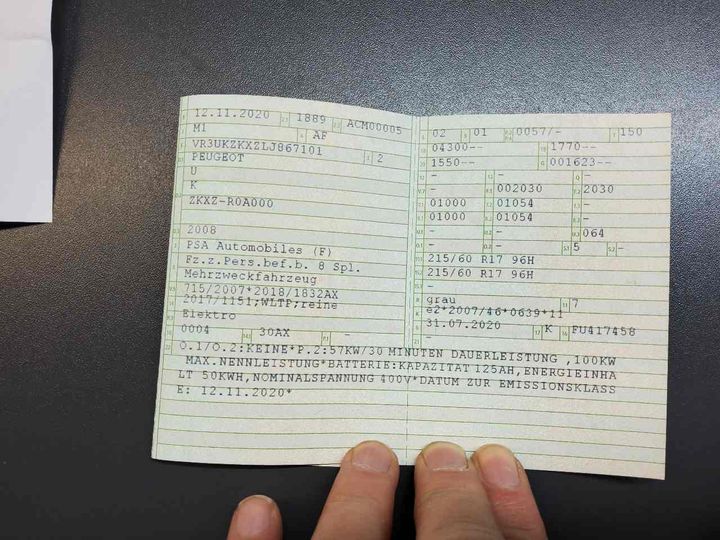 12.11.2020 1889 ACM00005
M1 AF
VR3UKZKXZLJ867101 2
PEUGEOT
U
K
ZKXZ-R0A000
2008
PSA Automobiles (F)
Fz.z.Pers.bef.b. 8 Spl.
Mehrzweckfahrzeug
715/2007*2018/1832AX
2017/1151;WLTP;reine
Elektro
0004 30AX -
02 01 0057/- 150
04300-- 1770--
1550-- 001623--
- - -
- 002030 2030
01000 01054 -
01000 01054 -
- - 064
- - 5 -
215/60 R17 96H
215/60 R17 96H
-
grau 7
e2*2007/46*0639*11
31.07.2020 K FU417458
O.1/O.2:KEINE*P.2:57KW/30 MINUTEN DAUERLEISTUNG ,100KW
MAX.NENNLEISTUNG*BATTERIE:KAPAZITAT 125AH,ENERGIEINHA
LT 50KWH,NOMINALSPANNUNG 400V*DATUM ZUR EMISSIONSKLASS
E: 12.11.2020*